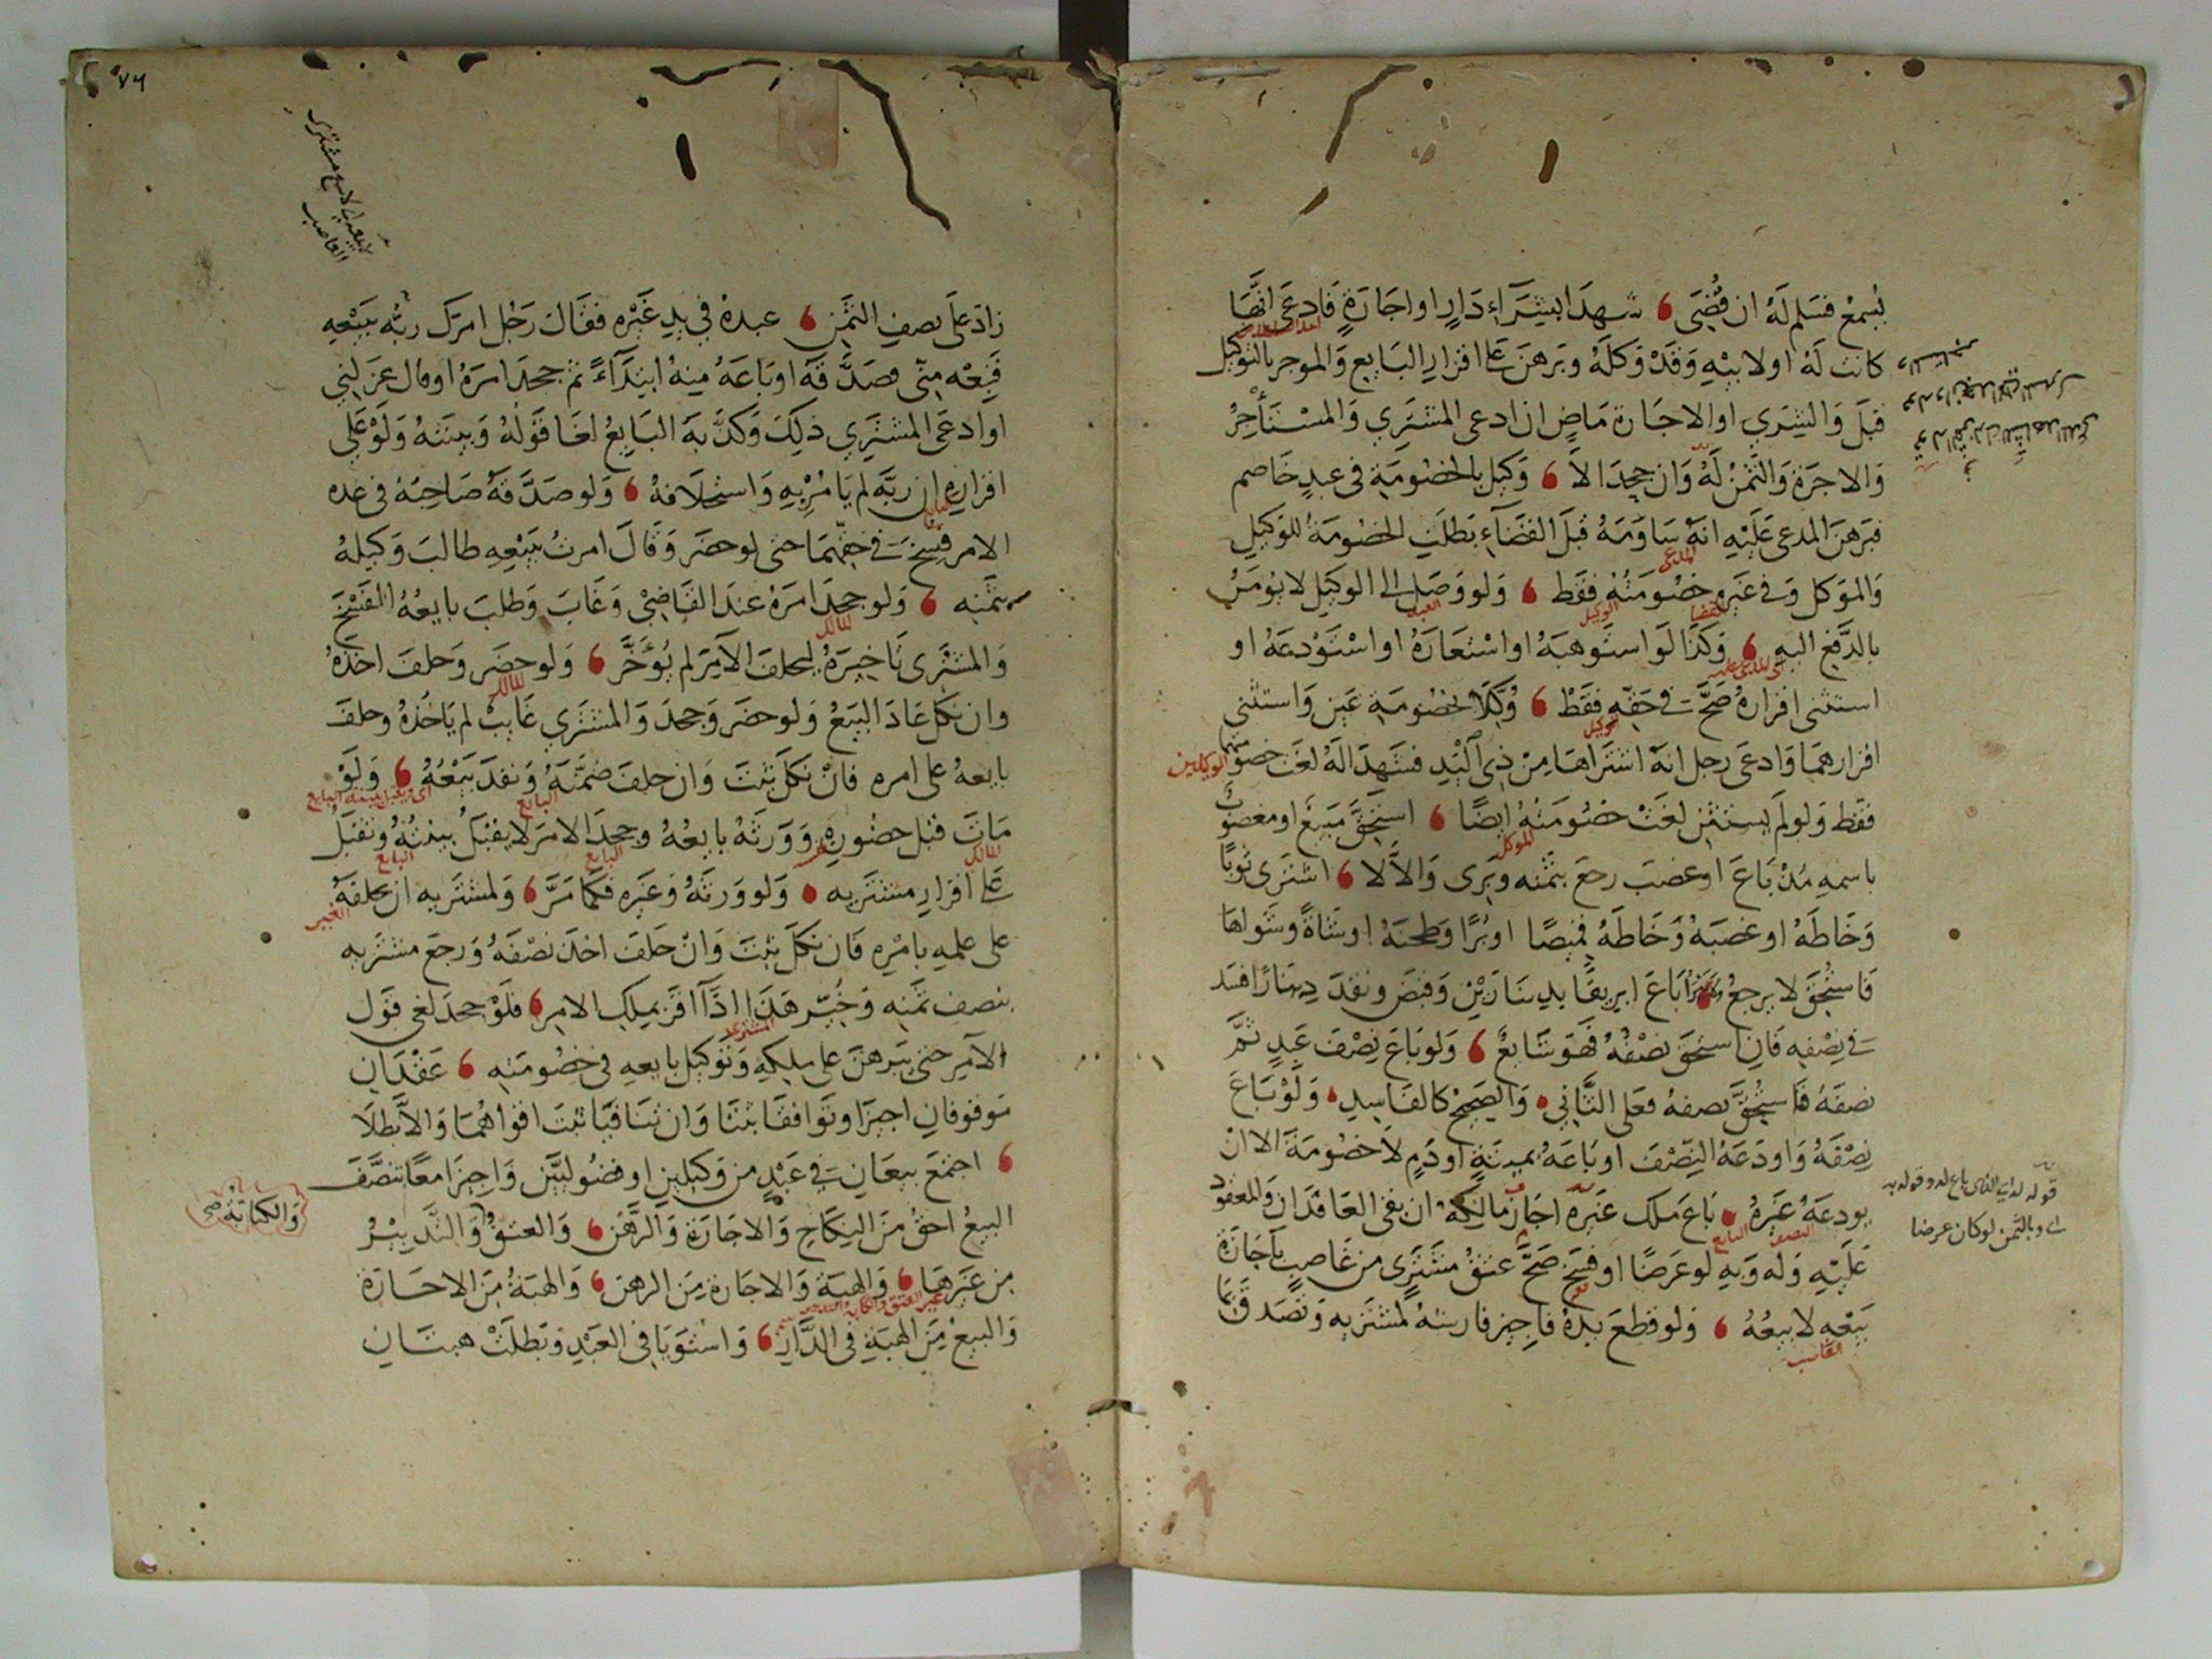 يسمع فسلم له ان قُضِىَ شهدا بشِرَآءِ دَارٍ او اجَارَةٍ فَادعَى انَّهَا
كانت لَهُ او لابيْهِ وَقَدْ وَكلَهُ وبَرهنَ عَلى اقرارِ البَايعِ وَالموجر بالتوكيل
قبلَ وَالشِرَي او الاجَارة مَاضٍ ان ادعى المشترِي وَالمسْتَأجِرُ
وَالاجرَة وَالثَّمنُ لَهُ وَان جحِدَا لاَ وَكيل بالخصُومَةِ فى عبدٍ خَاصم
فبَرهنَ المدعى عَلَيْهِ انهُ سَاوَمَهُ قبلَ القضَآءِ بَطلَتِ الخصُومَةُ للوَكيلِ
وَالموَكل وَفى غَيرِه خصُومَتُهُ فقَط وَلو وَصَل الى الوكيل لا يُومَرُ
بالدَّفعِ اليهِ وَكذَا لَو استَوهبَهُ او اسْتعَارَهُ او اسْتَوْدعَهُ او
استثنى اقرارهُ صَحَّ فى حَقّهِ فقَطْ وُكِّلاَ بخصُومَةِ عَينٍ وَاستثنى
اقرارهمَا وَادعَى رجل انهُ اشترَاهَا مِنْ ذِي اليَدِ فشهِدَا لَهُ لغَت خصومتهما
فقَط وَلو لَم يستثنِ لغَتْ خصُومَتُهُ ايضًا استحِقَّ مَبيع او مغصُوبٌ
باسمهِ مُذْ بَاعَ او غصبَ رجعَ بثمنِه وَبَرِى وَالاَّ لا اشترَى ثَوبًا
وَخَاطَهُ او غصبَهُ وَخَاطَهُ قميصًا او بُرًّا وَطحنَهُ او شَاةً وشَوَاهَا
فَاستُحِقَّ لا يرجعُ بَاعَ ابريقًا بدِينَارَيْنِ وَقبضَ وَنقدَ دِينَارًا فسَد
فى نِصْفِهِ فَان استحِقَ نصْفُهُ فَهوَ شَايعٌ وَلو بَاعَ نِصْفَ عَبدٍ ثمَّ
نصفَهُ فَاستُحِقَّ نصفهُ فعَلى الثَّانِي وَالصَحِيحُ كالفَاسِدِ وَلَوْ بَاعَ
نِصْفَهُ وَاودَعَهُ النِّصْفَ او بَاعَهُ بميتَةٍ او دَمٍ لاَ خصُومَةَ الا انْ
يودعَهُ غَيرُهُ بَاعَ مِلك غَيرِه اجَازَ مَالِكُهُ ان بقىَ العَاقدَان وَالمعقود
عَلَيْهِ وَله وَبهِ لو عَرضًا او فسَخ صَحَّ عتقُ مشترٍى من غَاصِبٍ بِاجَازَةِ
بَيْعِهِ لا بيعُهُ وَلو قطعَ يدهُ فاجِيز فارشهُ لمشترِيه وَتصَدقَ بمَا
الوكيل
المدعى
القضا
العبد
الوكيل
اى للمدعى عليه
الوكيل
الوكيلين
الموكل
النصف
البايع
الغاصب
قوله له اي الذي باع له وقوله به
اي وبالثمن لو كان عرضا
٧٦
زادَ عَلى نصفِ الثَّمَنِ عبدهُ فى يدِ غَيْرِه فقَالَ رَجُل امرَكَ ربُّه ببَيْعِهِ
فَبعْه مِنّى فصَدَّقَهُ او بَاعَهُ مِنهُ ابتِدَآءً ثم جحدَ امرَهُ او قال عزَلنِي
او ادعَى المشترِي ذلِكَ وَكذَّبهَ البَايعُ لغَا قَولُهُ وَبينتهُ وَلَوْ عَلى
اقرارِه ان ربَّه لم يَامُرْ بِهِ وَاستحلاَفهُ وَلو صَدَّقهُ صَاحِبُهُ فى عدم
الامر فسِخَ فى حقّهِمَا حتى لو حضَر وَقَالَ امرتُ ببَيْعِهِ طالبَ وَكيلهُ
بثمَنِه وَلو جحدَ امرَهُ عندَ القَاضِيْ وَغَابَ وَطلبَ بايعُهُ الفَسْخَ
وَالمشترِى تَاخِيرَهُ ليحلفَ الآمرَ لم يُؤخَّر وَلو حضَر وَحلفَ اخذهُ
وان نكل عَادَ البَيعُ وَلو حضَر وَجحدَ وَالمشترِي غَايبٌ لم يَاخُذهُ وحلفَ
بايعهُ على امرهِ فانْ نكلَ ثبتَ وَان حلفَ ضمَّنَهُ وَنفذَ بَيْعُهُ وَلَوْ
مَاتَ قبل حضُورِهِ وَوَرثَهُ بايعُهُ وجحدَ الامرَ لا يقبَل بينتُهُ وَتقبَلُ
عَلى اقرارِ مشترِيهِ وَلو وَرثَهُ وَغيَرِه فكمَا مَرَّ وَلمشترِيه ان يحلفَهُ
على علمِهِ بامْرِهِ فَان نكلَ ثبتَ وَانْ حَلفَ اخذَ نصْفَهُ وَرجعَ مشترِيهِ
بنصفِ ثمَنِه وَخُيّر هَذَا اذَا اقرَّ بمِلكِ الامِرِ فلَوْ جحدَ لغى قول
الآمِرِ حتى يبَرهنَ على مِلكِهِ وَتَوكيل بايعهِ فى خصُومَتِهِ عَقْدَانِ
مَوقوفانِ اجيزَا وتَوافقَا ثبتَا وَان تَنَافيَا ثبتَ اقوَاهُمَا وَالاَّ بَطلاَ
اجتمَعَ بيعَانِ فى عَبْدٍ من وَكيلَينِ او فضُوليَّينِ وَاجِيزَا معًا تنصَّفَ
البيعُ احقُ مِنَ النِكَاحِ وَالاجَارَةِ وَالرَّهْنِ وَالعتقُ وَالتَّدبِيْرُ
مِن غَيرهَا وَالهِبَة وَالاجَارة مِنَ الرهن وَالهَبَةُ مِنَ الاجَارَة
وَالبيعُ مِنَ الهبَةِ فى الدَّارِ وَاستَوَيَا فى العَبْدِ وَبَطلَتْ هبتَانِ
الغاصب
البايع
المالك
المالك
اى ويقبل بينة البايع
البايع
المالك
البايع
البايع
المشترى
وَالكتَابَةُ صح